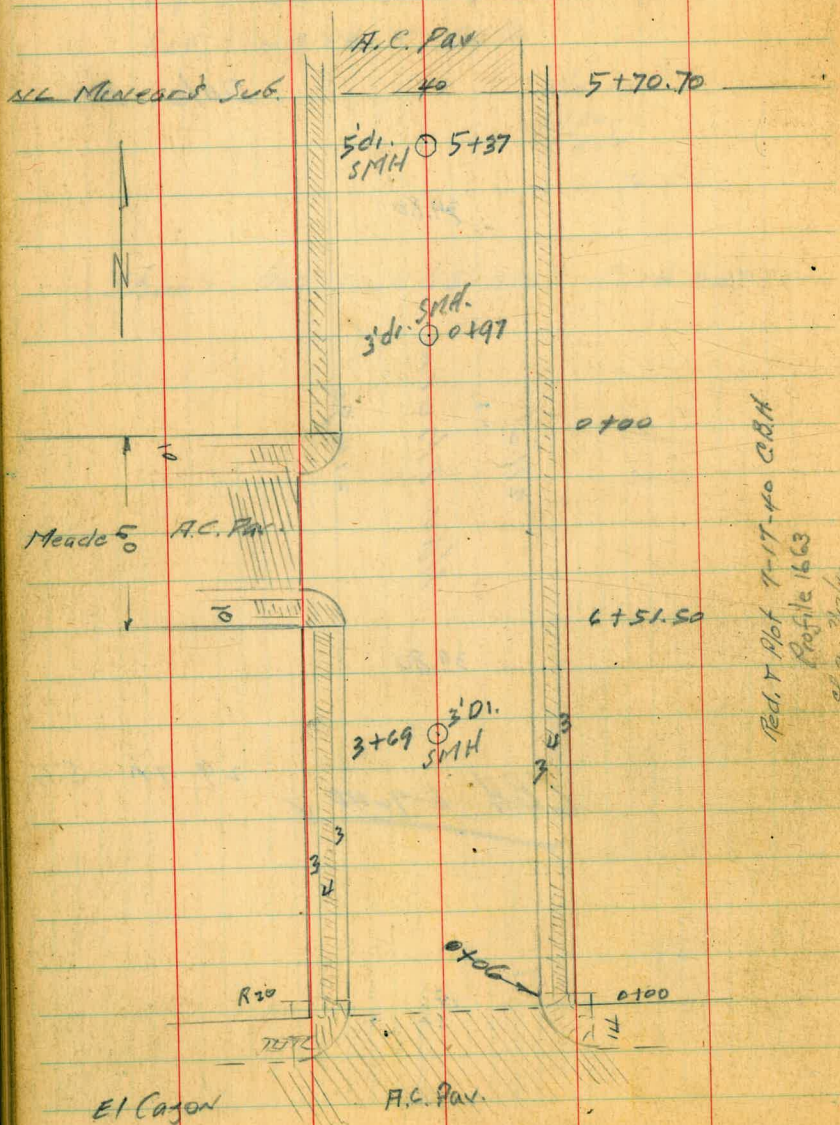 A.C. Pav
NL McNear's Sub.
40
5+70.70
5'di.
SMH
5+37
N
SMH.
3'di.
0+97
0+00
10
Meade
50
A.C. Pav.
10
6+51.50
3+69
3'DI.
SMH
3
4
3
3
3
4
0+06
R20
0+00
14
El Cajon
A.C. Pav.
Red. & Plot 7-17-40 C.B.H.
Profile 1663